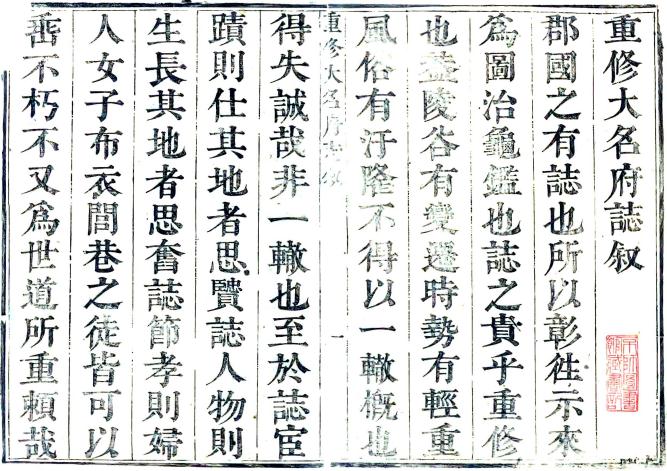 重修大名府誌叙
郡國之有誌也所以彰徃示來
爲圖治龜鑑也誌之貴乎重修
也葢陵谷有變遷時勢有輕重
風俗有汙隆不得以一轍槪也
重修大名府志叙
一
得失誠哉非一轍也至於誌宦
蹟則仕其地者思賢誌人物則
生長其地者思奮誌節孝則婦
人女子布衣閭巷之徒皆可以
垂不朽不又爲世道所重賴哉